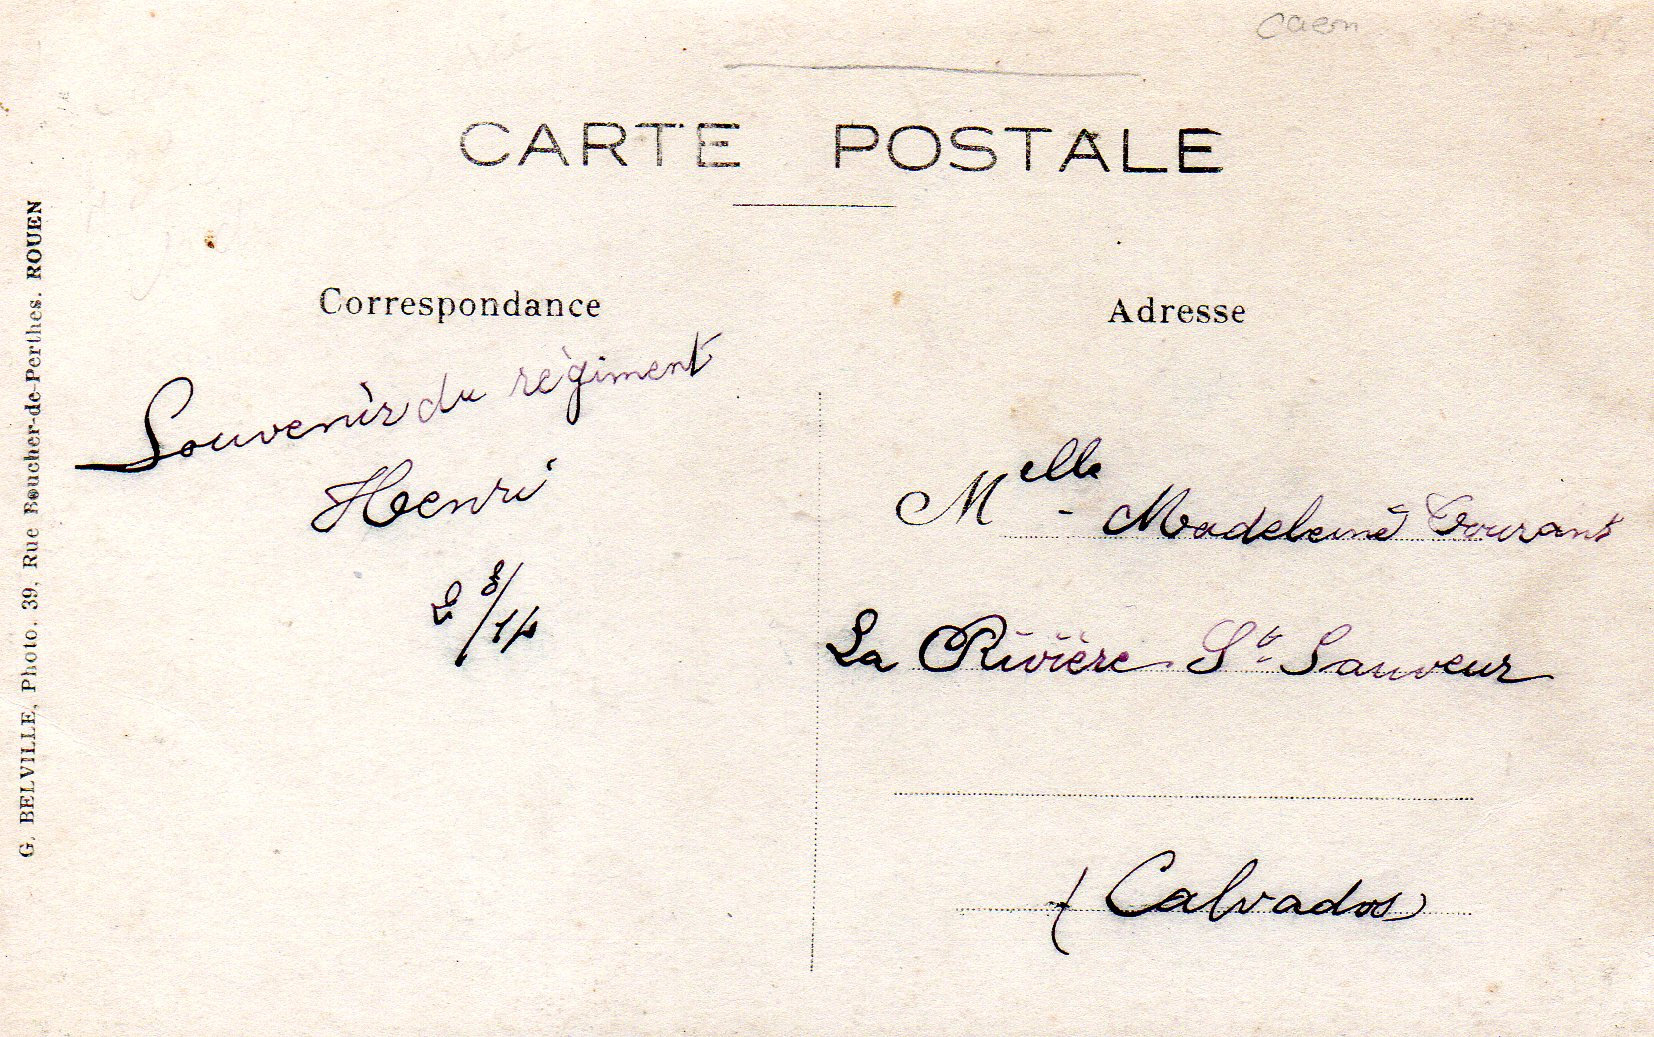 Caen
CARTE POSTALE
Correspondance
Souvenir du régiment
Henri
2 8/14
Adresse
Melle - Madeleine
La Rivière St. Sauveur
(Calvados)
G. BELVILLE, Photo. 39, Rue Boucher-de-Perthes. ROUEN